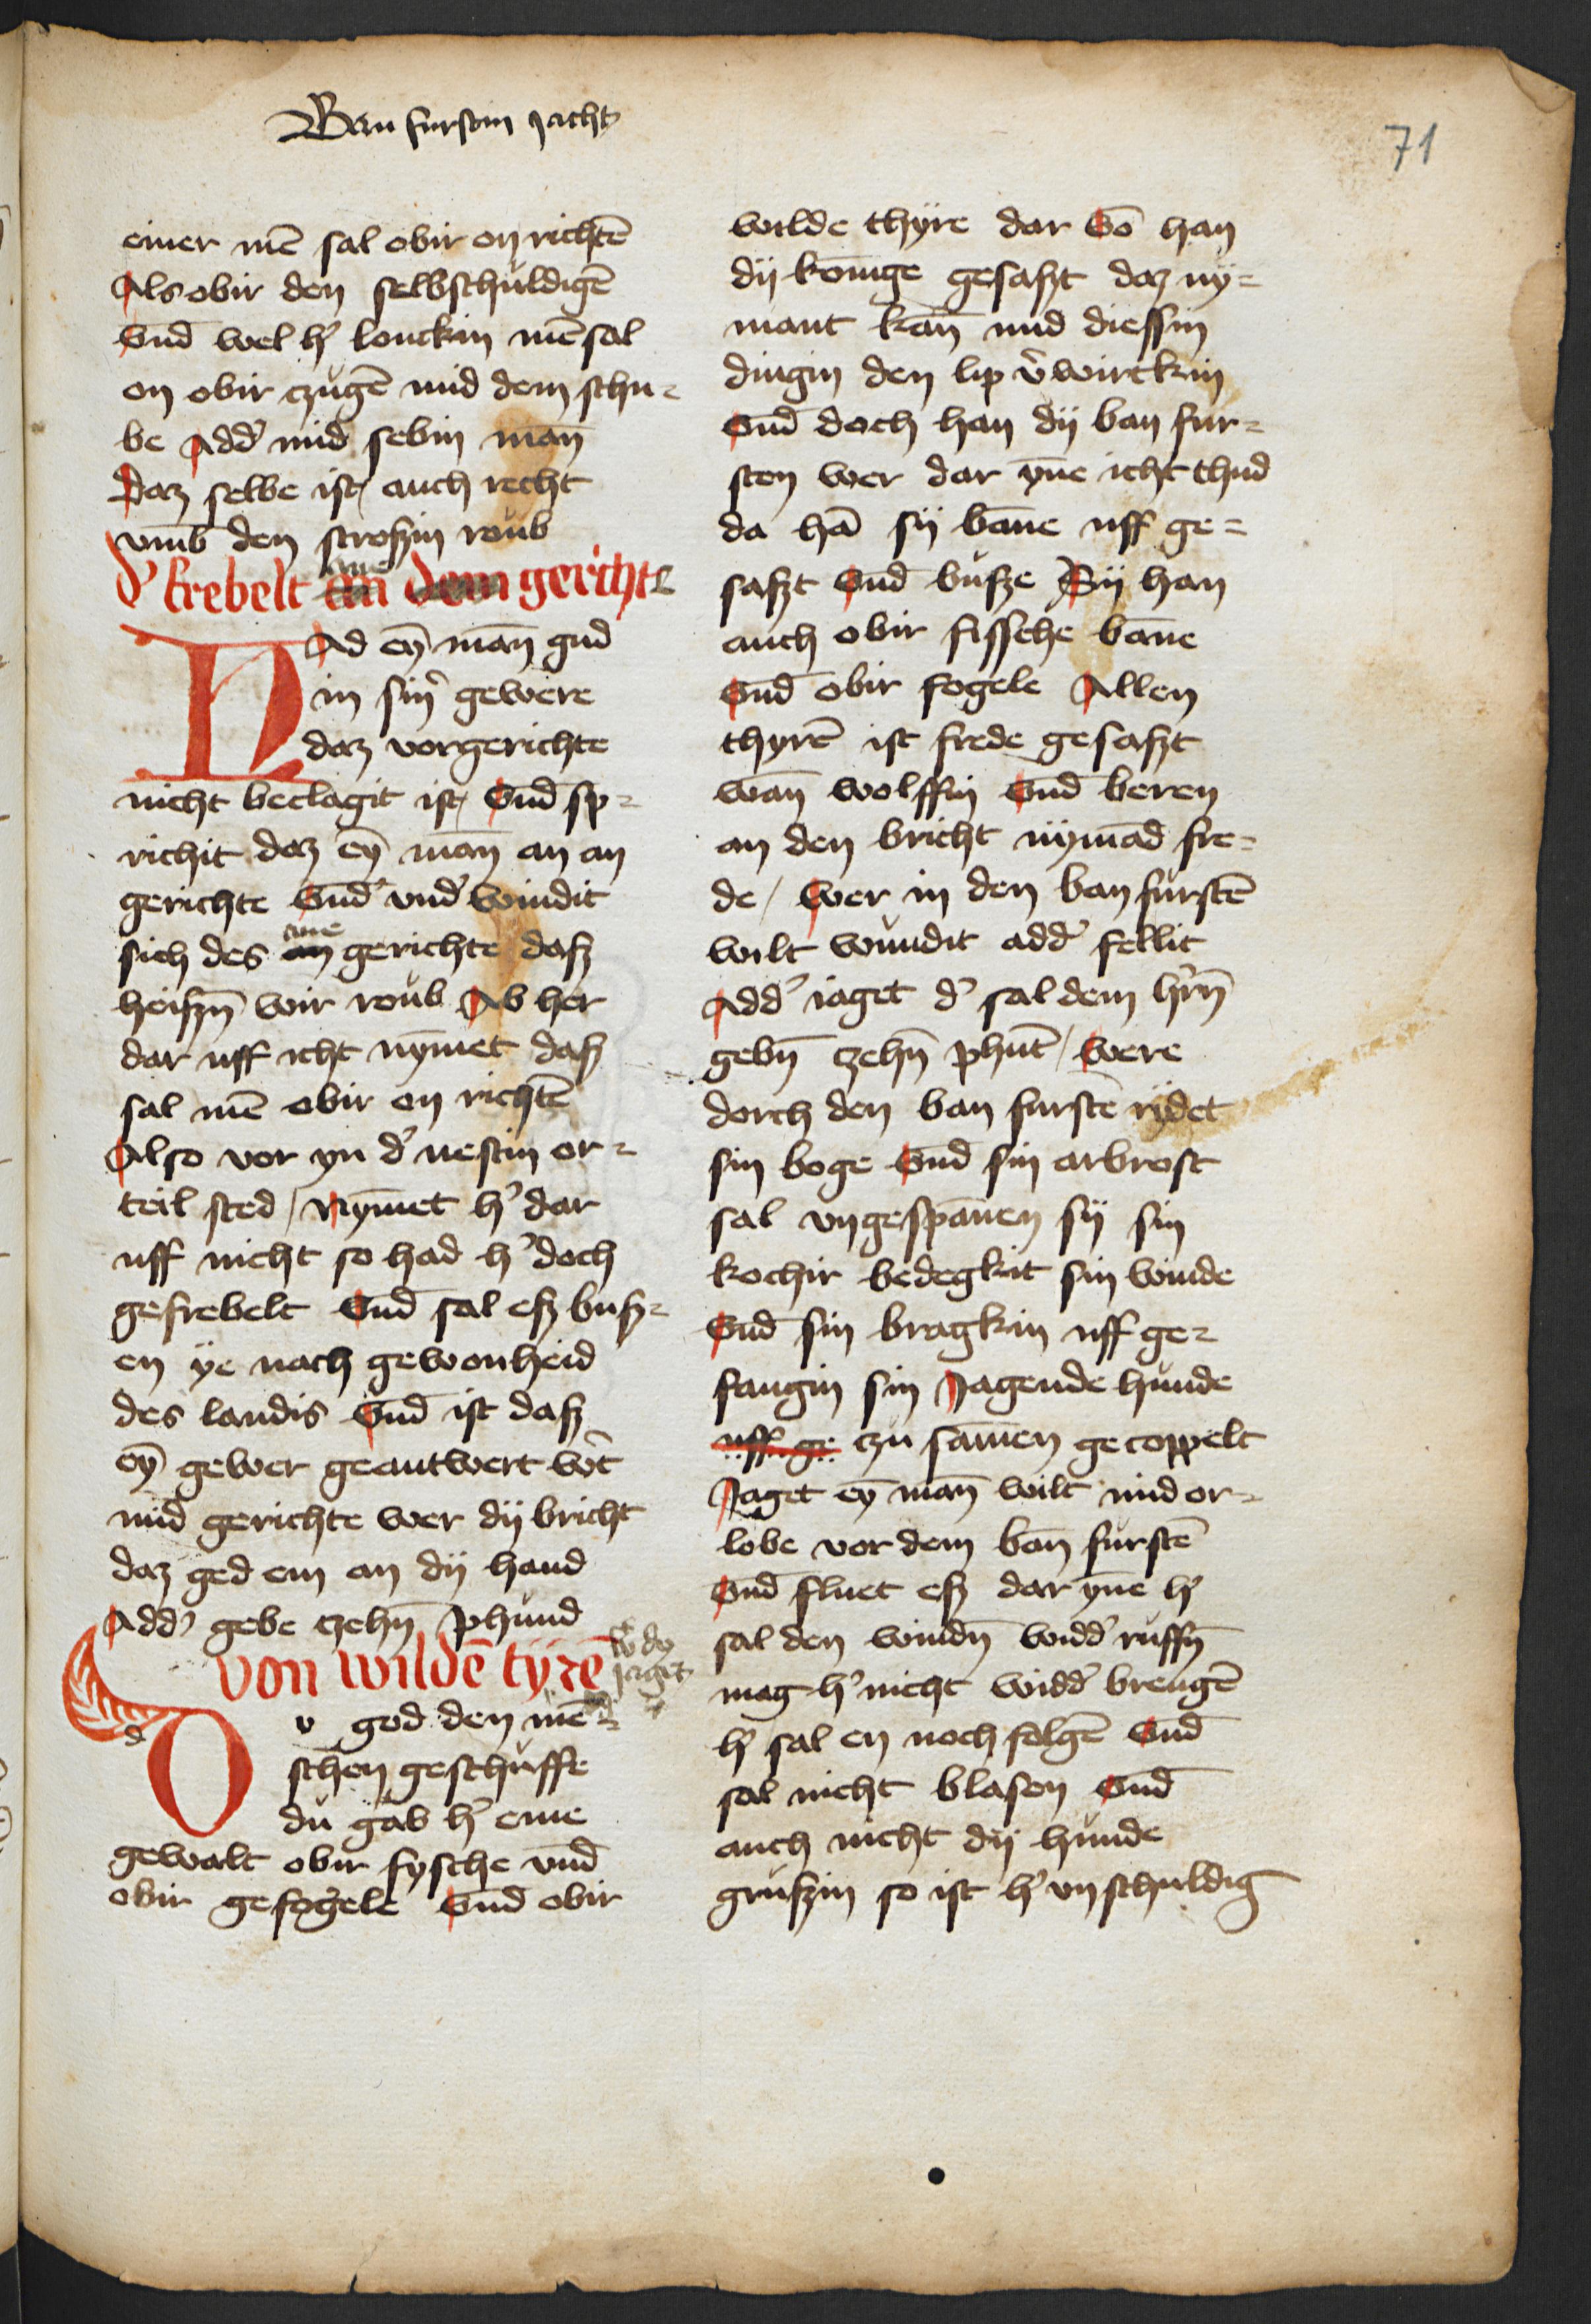 Ban furstin jacht
71
einer mē sal obir on richtē
Als obir den selbschuldigē
Vnd̄ wel h' louckin mē sal
on obir czugē mid dem schu=
be Add' mid sebin man̄
Daz selbe ist auch recht
vmb den stroszin roub
d' frebelt ane gerichte
Had eȳ man̄ gud
in sin' gewere
daz vorgerichte
nicht beclagit ist Vnd̄ sp=
richit daz eȳ man̄ an an
gerichte Vnd̄ vnd' windit
sich des ane gerichte dasz
heiszn̄ wir roub Ab her
dar uff icht nym̄et dasz
sal mē obir on richtē
Also vor yn d' nestin or=
teil sted / Nym̄et h' dar
uff nicht so had h' doch
gefrebelt Vnd̄ sal esz busz=
en ÿe nach gewonheid
des landis Vnd̄ ist dasz
eȳ gewer geantwert w't
mid gerichte wer dÿ bricht
daz ged em an dÿ hand
Add' gebe czehn̄ phund
von wildē tyrē
w' dy jaget
Do god den mē=
schen geschuffe
du gab h' eine
gewalt obir fysche vnd̄
obir gefogele Vnd̄ obir
wilde thyre dar Vō han
dÿ konīge gesaszt daz nÿ=
mant kan̄ mid diessin
dingin den lip v'wirckin
Vnd̄ doch han dÿ ban fur=
sten wer dar yn̄e icht thud
da hā sÿ ban̄e uff ge=
saszt Vnd̄ busze Sÿ han
auch obir fissche ban̄e
Vnd̄ obir fogele Allen
thyrē ist frede gesaszt
wan̄ wolffin Vnd̄ beren
an den bricht nÿmād fre=
de / Wer in den ban furstē
wilt wundit add' fellit
Add' iaget d' sal dem h'rn̄
gebn̄ czehn̄ phūt / Were
dorch den ban furstē rÿdet
sin boge Vnd̄ sin arbrost
sal vngespan̄en sÿ sin
kochir bedegkit sin winde
Vnd̄ sin bragkin uff ge=
fangin sin Jagende hunde
uff ge czu sam̄en gecoppelt
Jaget eȳ man̄ wilt mid or=
lobe vor dem ban furstē
Vnd̄ fluet esz dar yn̄e h'
sal den windn̄ widd' ruffn̄
mag h' nicht widd' brengē
h' sal en noch folgē Vnd̄
sal nicht blasen Vnd̄
auch nicht dÿ hunde
gruszin so ist h' vnschuldig